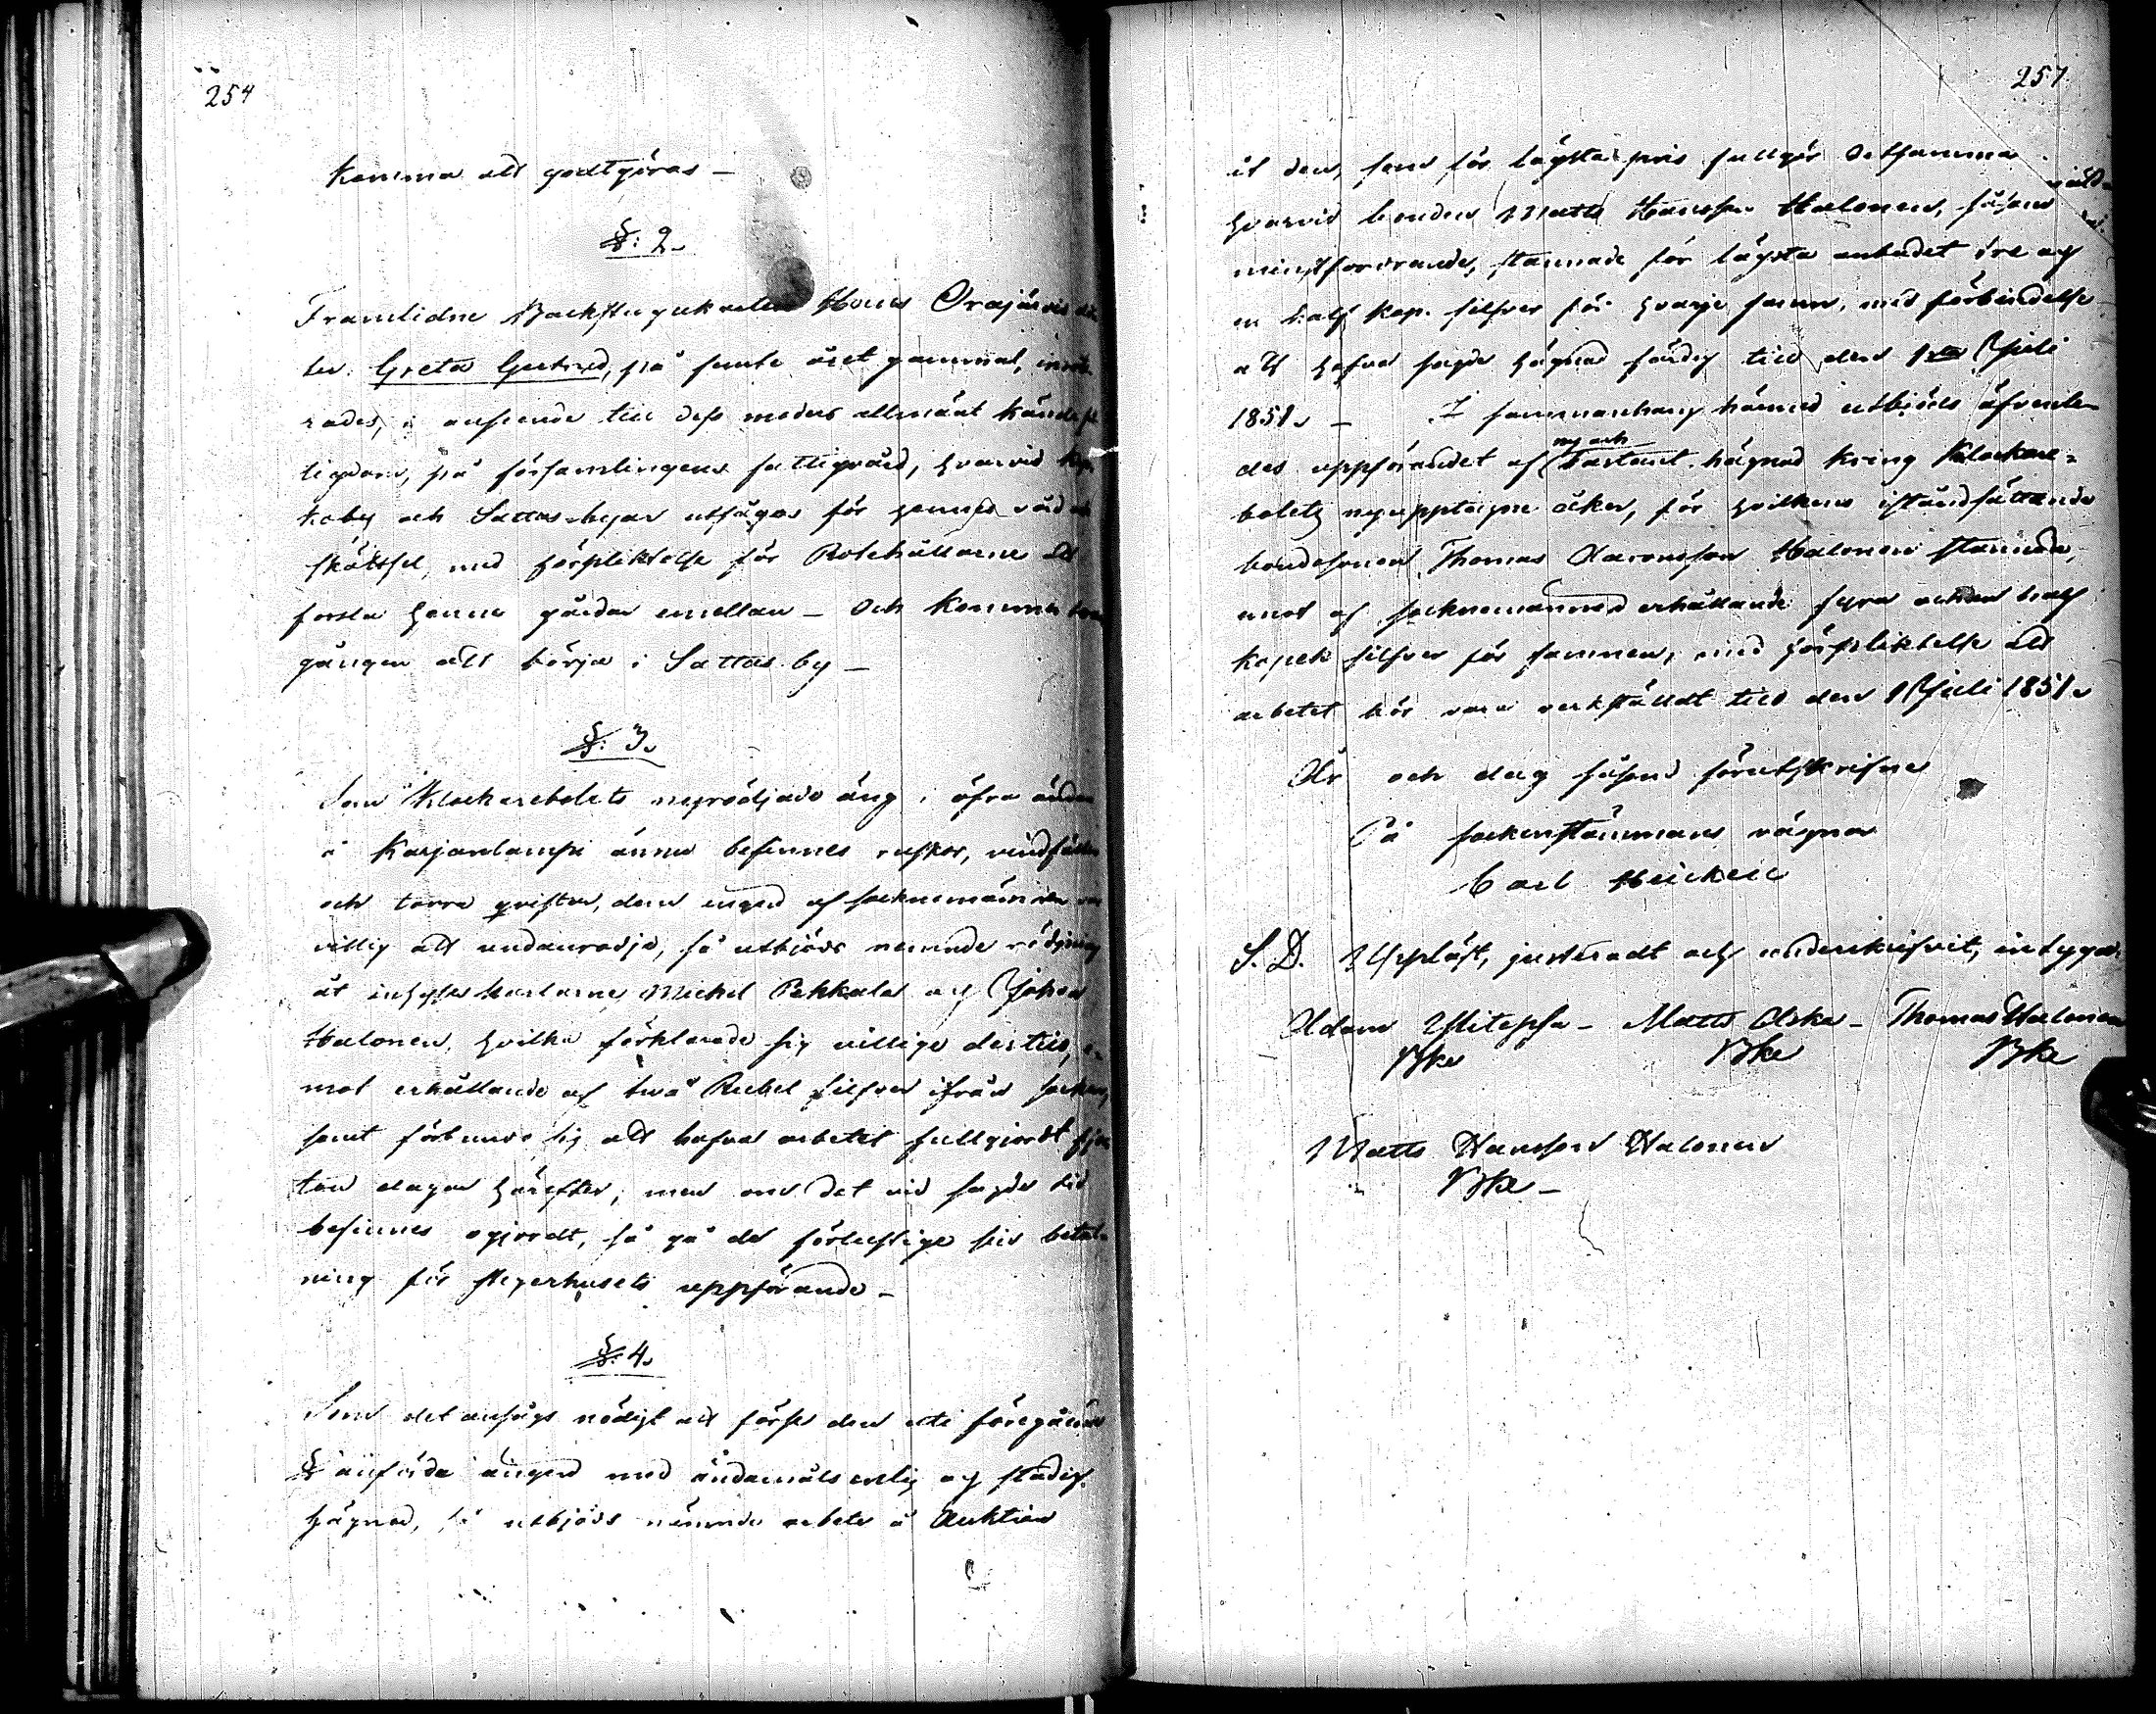 254
komma att godtgöras –
§: 2.
Framlidne Backstugukarlen Hans Orajärvis dot
ter Greta Gertrud, på femte året gammal, inte
rades, i anseende till dess moders allmänt kända fat
tigdom, på församlingens fattigvård, hvarvid
koby och Sattas byar utsågos för hennes vård och
skötsel, med förpliktelse för Rotehållarne att
forsla henne gårdar emellan – Och kommer
gången att börja i Sattas by –
§: 3.
Som Klockarebolets nyrödjade äng i öfra ändan
å Karjanlampi ännu befinnes ruskor, vindfällen
och torra qvistar, dem ingen af socknemännen var
villig att undanrödja, så utbjöds nämnde rödjning
åt inhyses karlarne Michel Pekkala och Johan
Halonen, hvilka förklarade sig villige dertill, e-
mot erhållande af två Rubel silfver ifrån socken,
samt förbundo sig att hafva arbetet fullgjordt fjor
ton dagar härefter; men om det vid sagde tid
befinnes ogjordt, så gå de förlustige sin betal-
ning för Fligerhusets uppförande –
§: 4.
Som det ansågs nödigt att förse den uti föregående
§ anförda ängen med ändamålsenlig och stadig
hägnad, så utbjöds nämnde arbete å Auktion
257
åt den, som för lägsta pris fullgör detsamma
hvarvid bonden Matts Hansson Halonen, såsom
minstfordrande, stannade för lägsta anbudet tre och
en half kop. silfver för hvarje famn, med förbindelse
att hafva sagde hägnad färdig till den 1sta Juli
1851. – I sammanhang härmed utbjöds äfvenle-
ny och
des uppförandet af bastant hägnad kring Klockare-
bolets nyupptagne åker, för hvilkens iståndsättande
bondesonen Thomas Aaronsson Halonen stannade,
mot af socknemännen erhållande fyra och en half
kopek silfver för famnen, med förpliktelse att
arbetet bör vara verkställdt till den 1 Juli 1851.
År och dag såsom förutskrifne
På sockenstämmans vägnar
Carl Heickell
S. D. Uppläst, justeradt och underskrifvit, intyga:
Adam Ylitepsa – Matts Alska – Thomas Halonen
Bke Bke Bke
Matts Hansson Halonen
Bke –